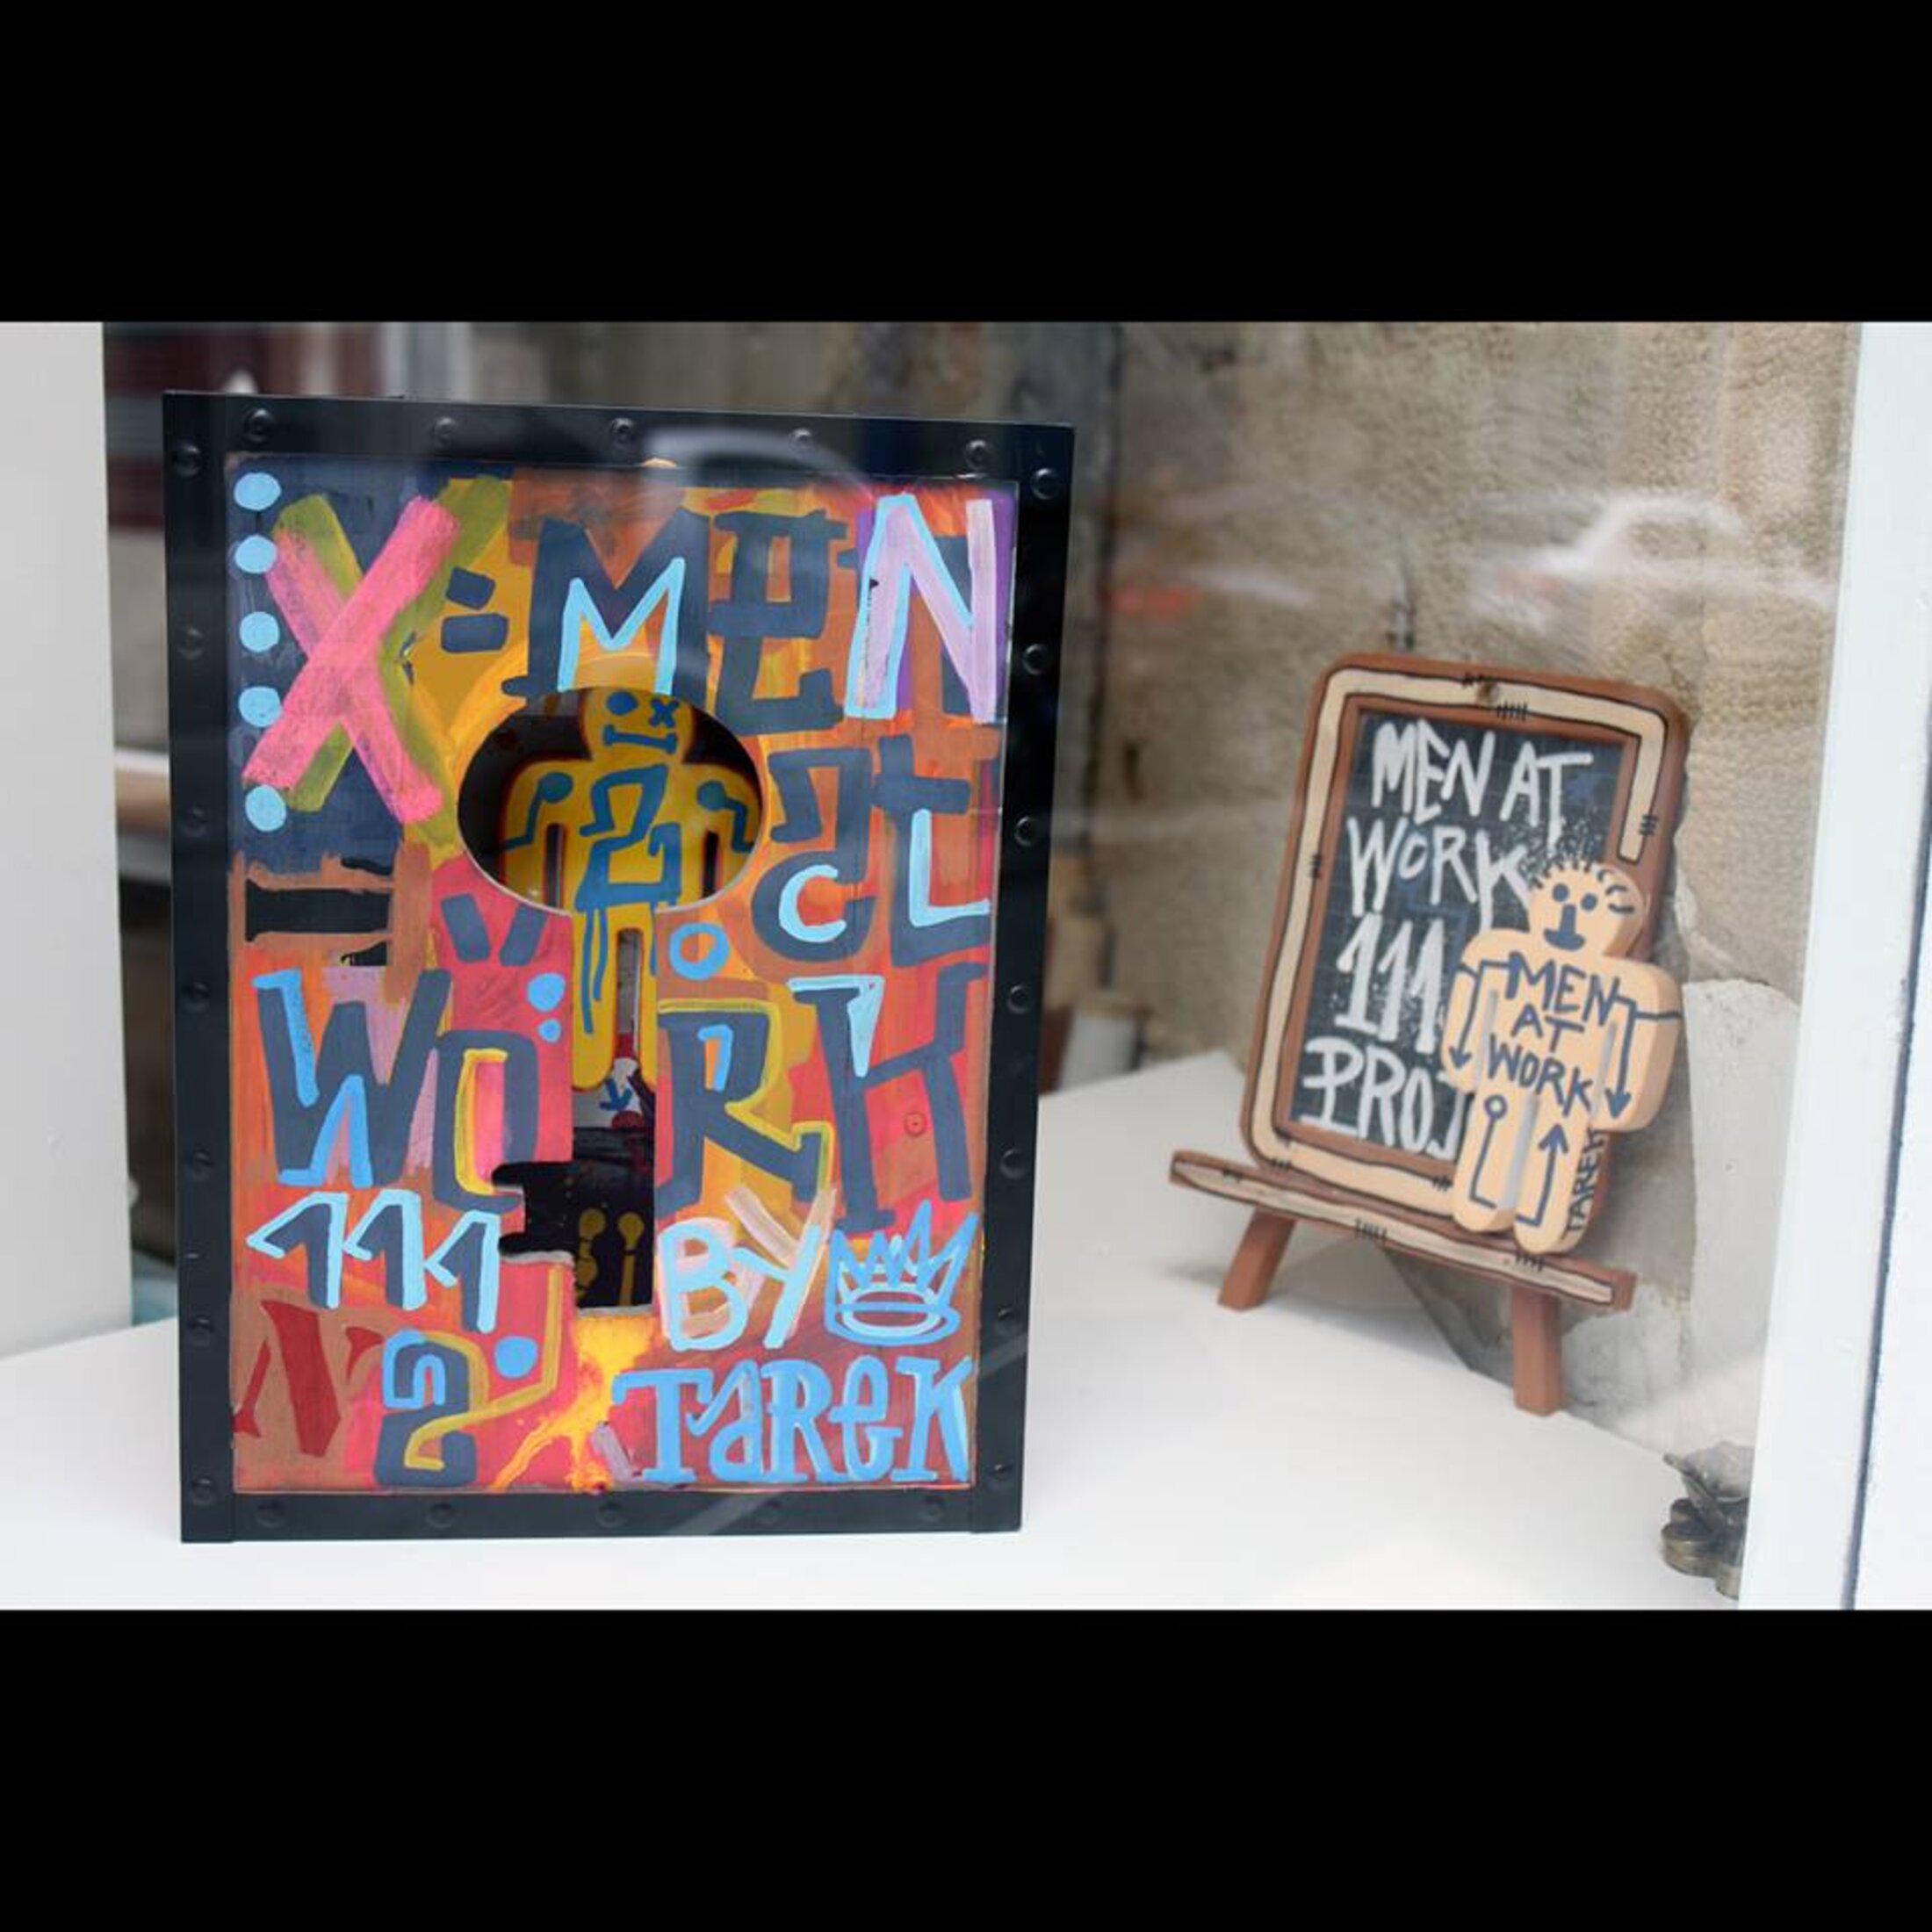 X-MEN
at
CL
WORK
111
BY
N2
TAREK
MEN AT
WORK
111
PROJ
MEN
AT
WORK
TAREK